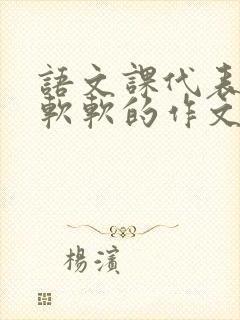 語文課代表
軟軟的作文
楊濱